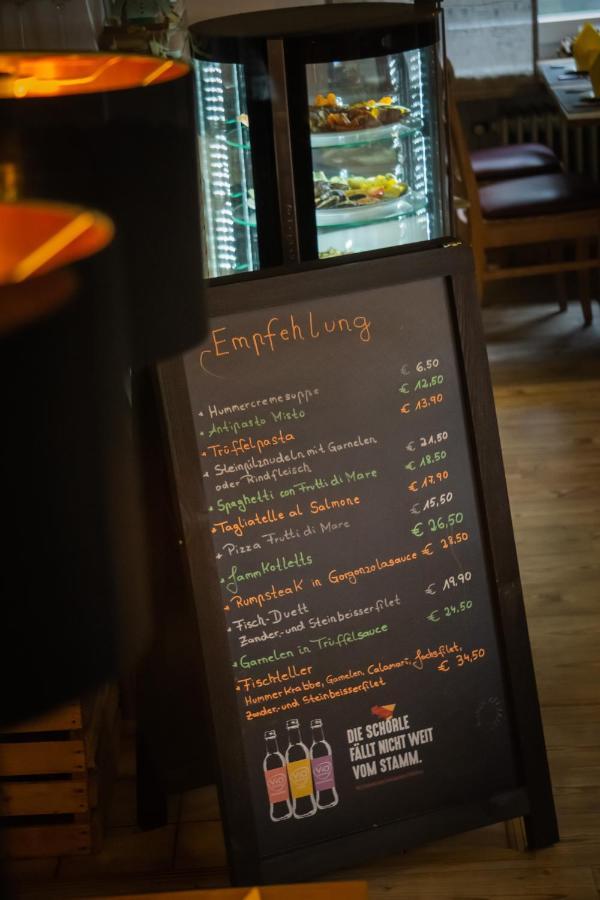 Empfehlung
• Hummercremesuppe € 6,50
• Antipasto Misto € 12,50
• Trüffelpasta € 13,90
• Steinpilznudeln mit Garnelen
oder Rindfleisch € 21,50
• Spaghetti con Frutti di Mare € 18,50
• Tagliatelle al Salmone € 17,90
• Pizza Frutti di Mare € 15,50
• Lammkotletts € 26,50
• Rumpsteak in Gorgonzolasauce € 28,50
• Fisch-Duett
Zander- und Steinbeisserfilet € 19,90
• Garnelen in Trüffelsauce € 24,50
• Fischteller
Hummerkrabbe, Garnelen, Calamari, Lachsfilet,
Zander- und Steinbeisserfilet € 34,50
DIE SCHORLE
FÄLLT NICHT WEIT
VOM STAMM.
ViO ViO ViO